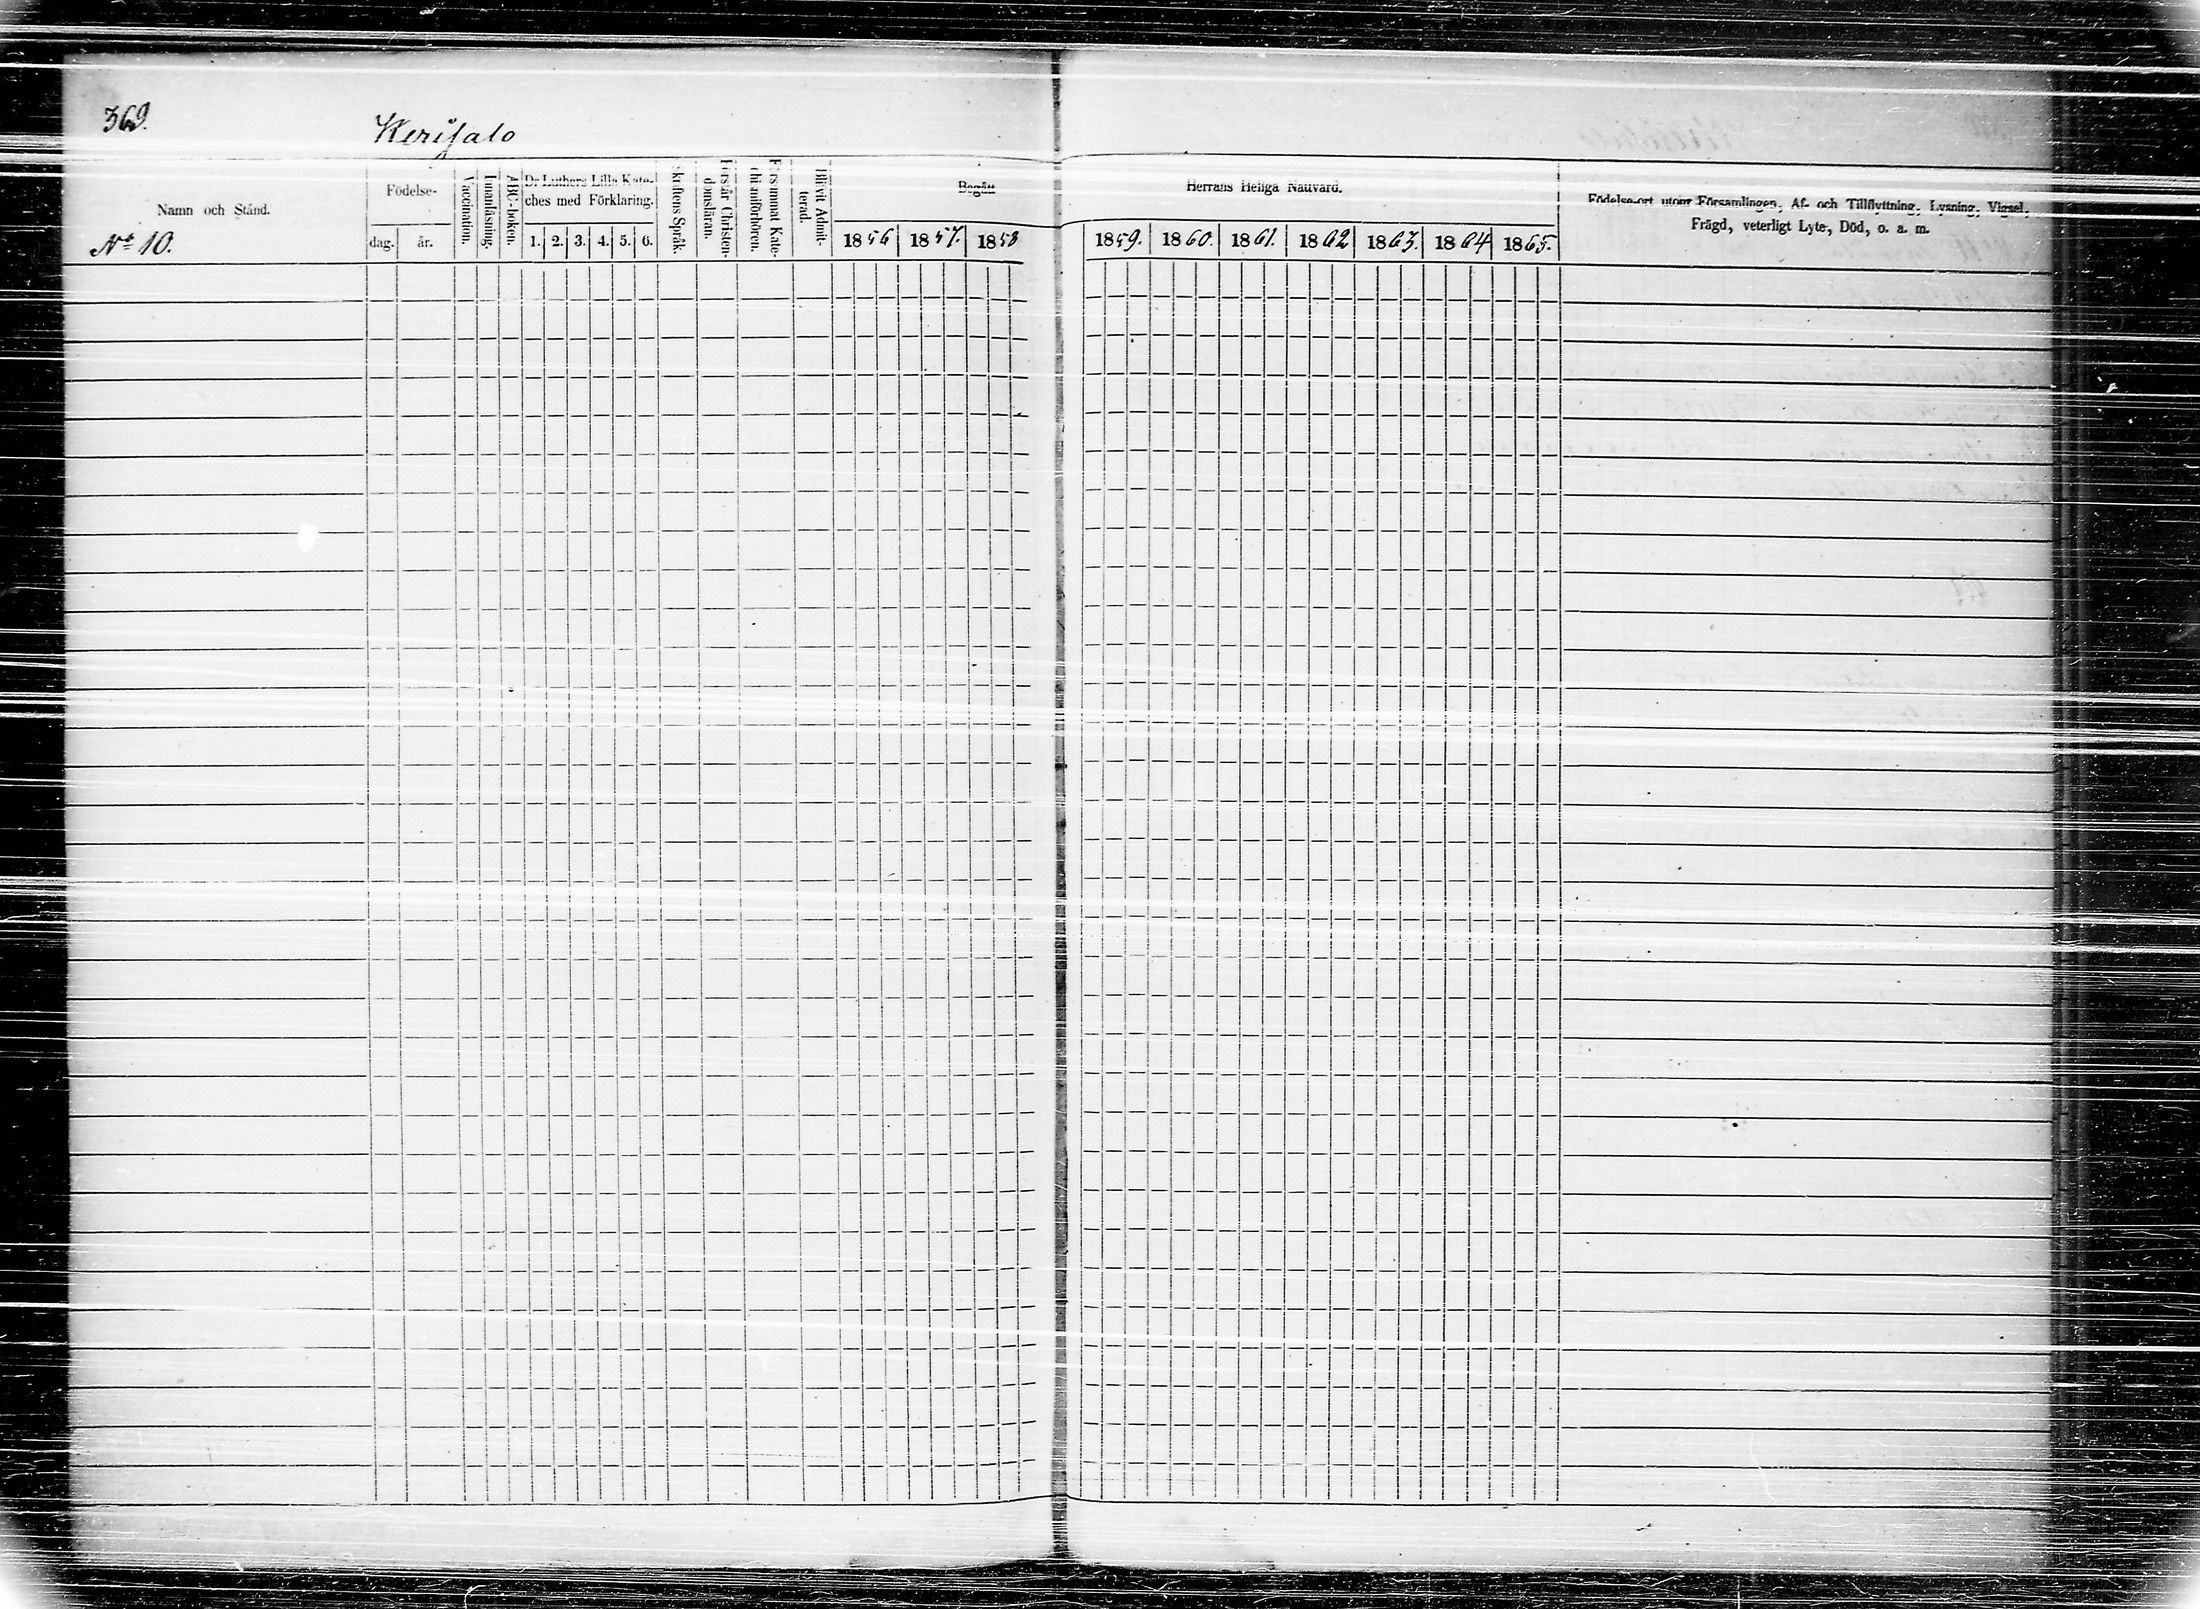 369.
Kerisalo
Namn och Stånd.
Nº 10.
Födelse-
dag. år.
Vaccination.
Innanläsning.
ABC-boken.
Dr Luthers Lilla Kate-
ches med Förklaring.
1. 2. 3. 4. 5. 6.
Skriftens Språk.
Förstår Christen-
domsläran.
Försummat Kate-
chismiförhören.
Blifvit Admit-
terad.
Begått
1856 1857. 1858
Herrans Heliga Nattvard.
1859. 1860. 1861. 1862 1863. 1864 1865.
Födelse-ort utom Församlingen, Af- och Tillflyttning, Lysning, Vigsel,
Frägd, veterligt Lyte, Död, o. a. m.